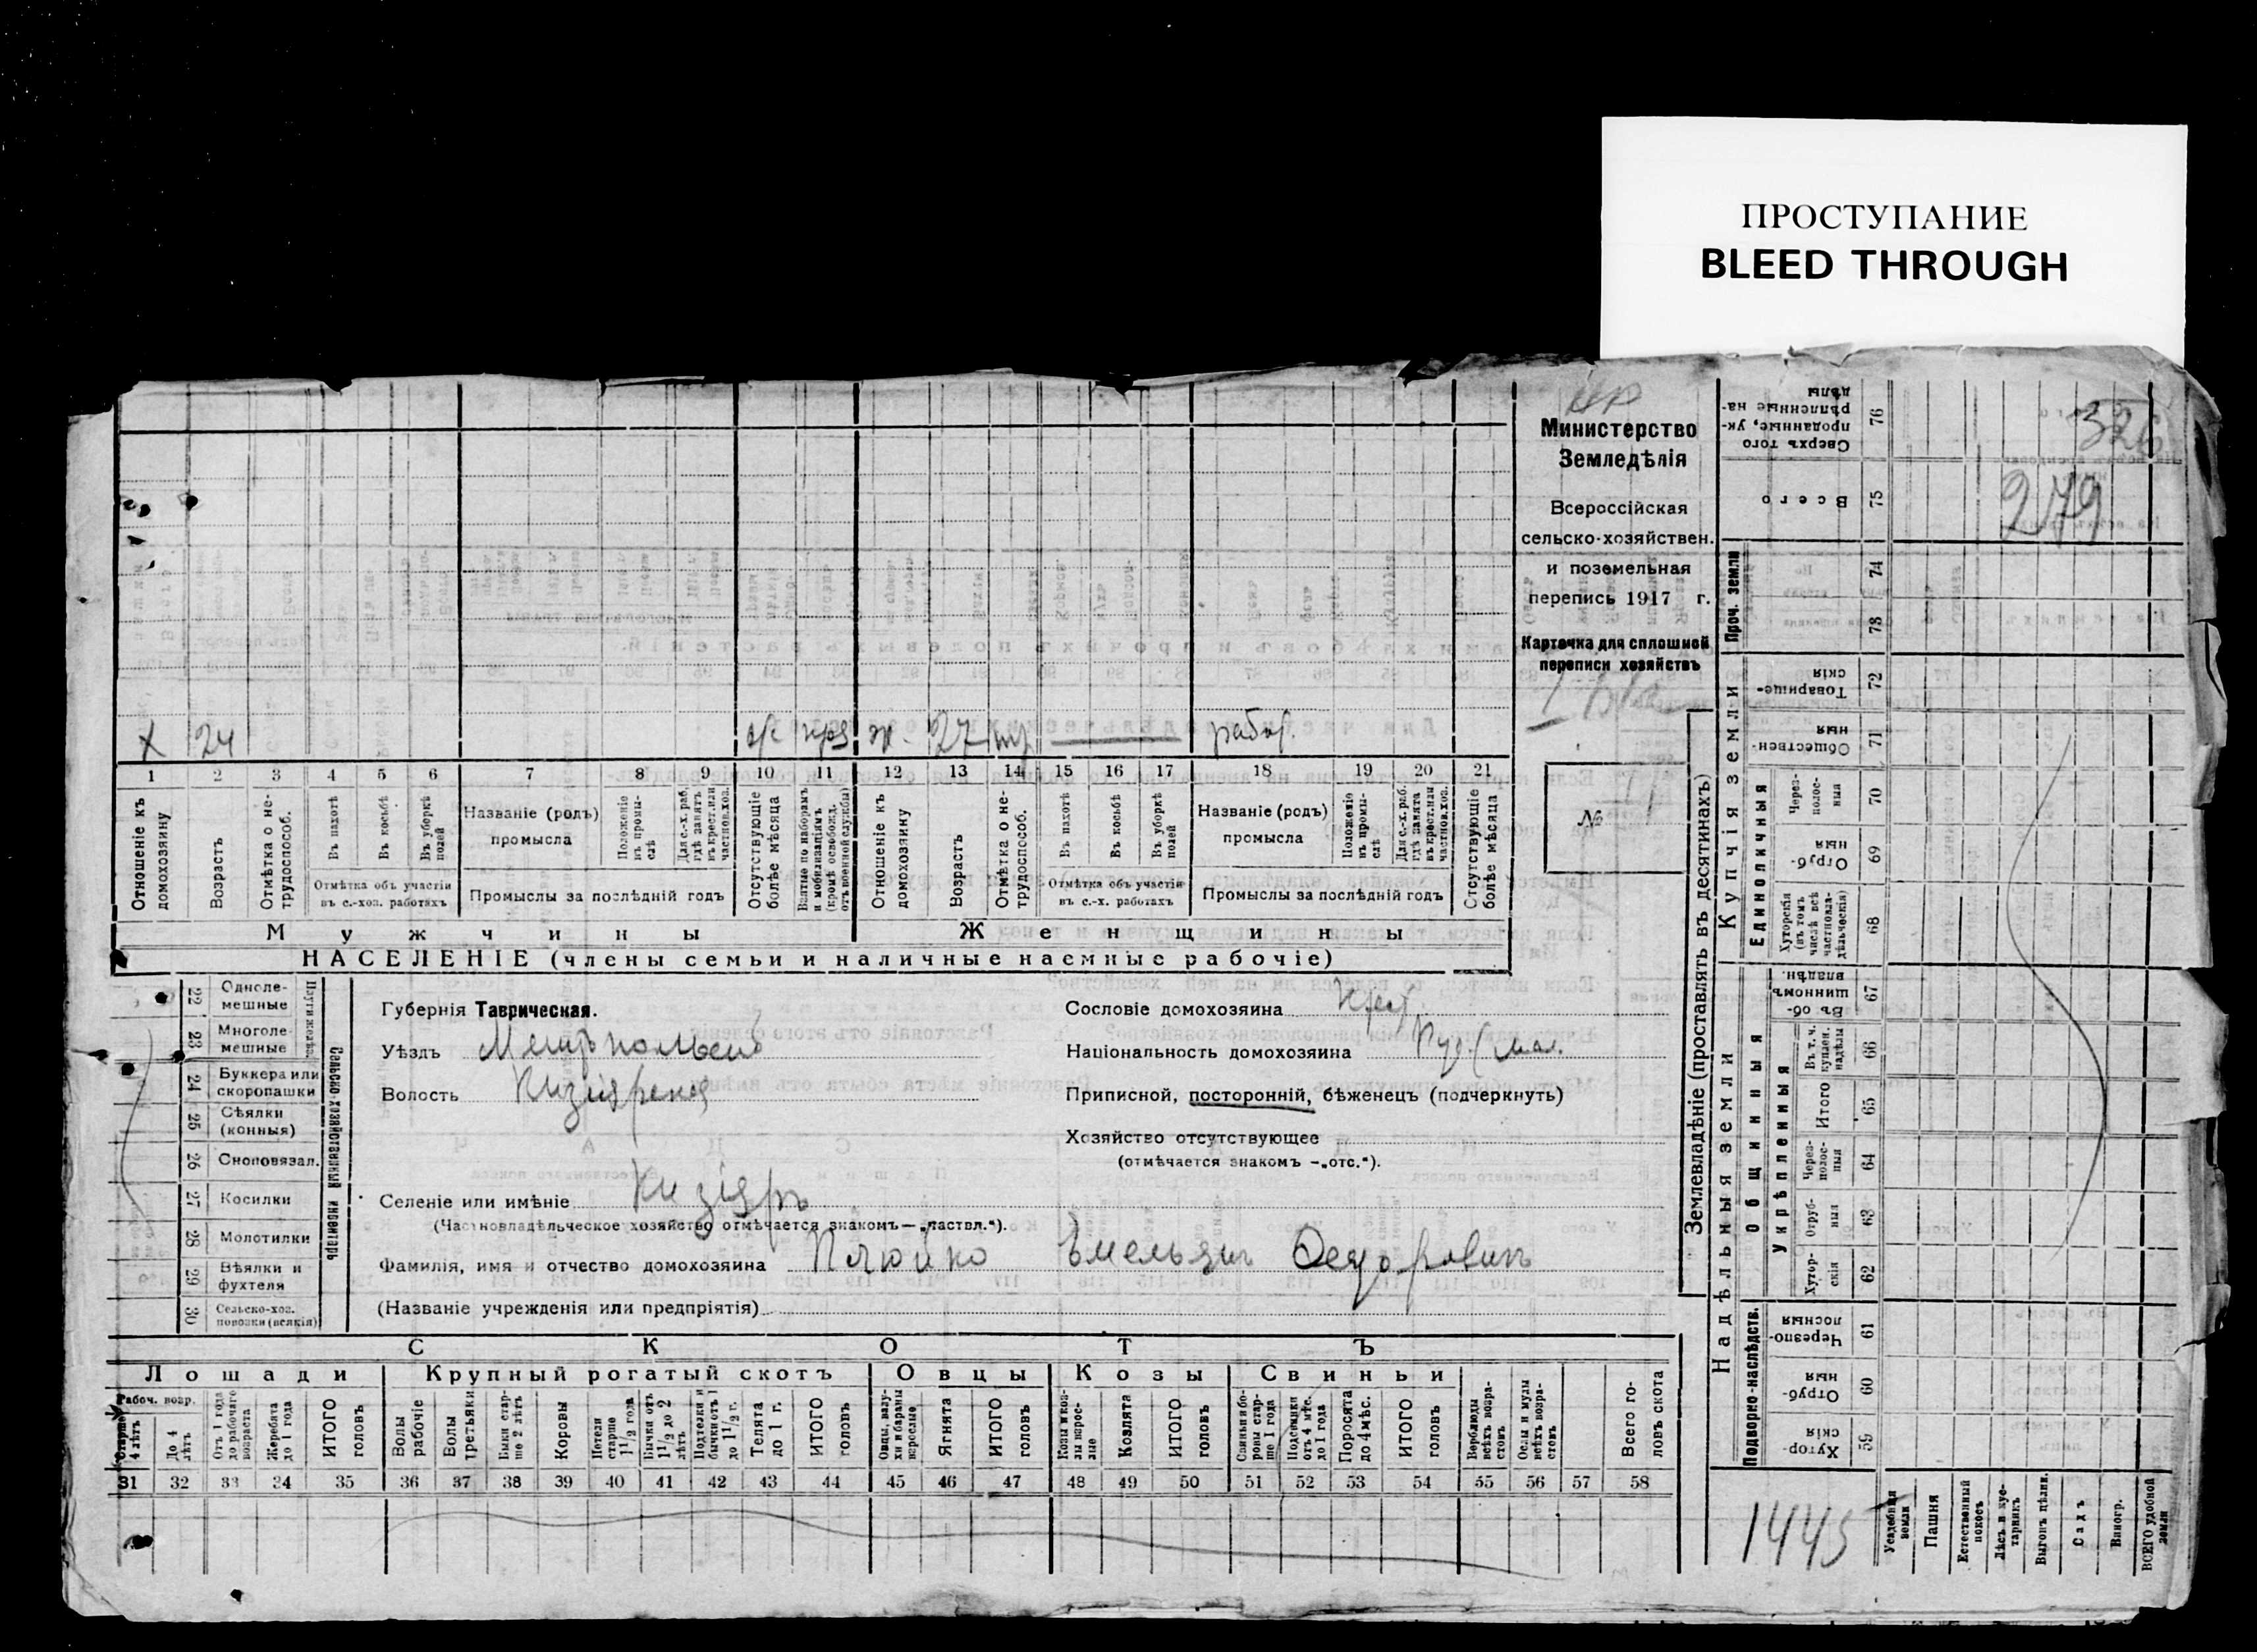 ПРОСТУПАНИЕ
BLEED THROUGH
Министерство
Земледѣлія
Всероссійская
сельско-хозяйствен.
и поземельная
перепись 1917 г.
Карточка для сплошной
переписи хозяйствъ
№
326
279
х 24 ж. 27 рабоч.
1 2 3 4 5 6 7 8 9 10 11 12 13 14 15 16 17 18 19 20 21
Отношеніе къ домохозяину
Возрастъ
Отмѣтка о не-трудоспособ.
Въ пахотѣ
Въ косьбѣ
Въ уборкѣ полей
Отмѣтка объ участіи въ с.-хоз. работахъ
Названіе (родъ) промысла
Положеніе въ промы-слѣ
Для с.-х. раб. гдѣ занятъ въ крест. или частнов. хоз.
Промыслы за послѣдній годъ
Отсутствующіе болѣе мѣсяца
Взятые по наборамъ и мобилизаціямъ (кромѣ освобожд. отъ военной службы)
Отношеніе къ домохозяину
Возрастъ
Отмѣтка о не-трудоспособ.
Въ пахотѣ
Въ косьбѣ
Въ уборкѣ полей
Отмѣтка объ участіи въ с.-х. работахъ
Названіе (родъ) промысла
Положеніе въ промы-слѣ
Для с.-х. раб. гдѣ занята въ крест. или частнов. хоз.
Промыслы за послѣдній годъ
Отсутствующіе болѣе мѣсяца
Мужчины
Женщины
НАСЕЛЕНІЕ (члены семьи и наличные наемные рабочіе)
22 Одноле-мешные
23 Многоле-мешные
24 Буккера или скоропашки
25 Сѣялки (конныя)
26 Сноповязал.
27 Косилки
28 Молотилки
29 Вѣялки и фухтеля
30 Сельско-хоз. повозки (всякія)
Сельско-хозяйственный инвентарь
Губернія Таврическая.
Уѣздъ
Волость
Селеніе или имѣніе Кизіяръ
(Частновладѣльческое хозяйство отмѣчается знакомъ—„частвл.“).
Фамилія, имя и отчество домохозяина Емельян Федорович
(Названіе учрежденія или предпріятія)
Сословіе домохозяина Крест.
Національность домохозяина Рус. (мал.
Приписной, посторонній, бѣженецъ (подчеркнуть)
Хозяйство отсутствующее
(отмѣчается знакомъ -„отс.“).
СКОТЪ
Лошади
Крупный рогатый скотъ
Овцы
Козы
Свиньи
Рабоч. возр.
Старше 4 лѣтъ
До 4 лѣтъ
Отъ 1 года до рабочаго возраста
Жеребята до 1 года
ИТОГО головъ
Волы рабочіе
Волы третьяки
Быки стар-ше 2 лѣтъ
Коровы
Нетели старше 1 1/2 года
Бычки отъ 1 1/2 до 2 лѣтъ
Подтелки и бычки отъ 1 до 1 1/2 г.
Телята до 1 г.
ИТОГО головъ
Овцы, валу-хи и бараны взрослые
Ягнята
ИТОГО головъ
Козы и коз-лы взрос-лые
Козлята
ИТОГО головъ
Свиньи и бо-ровы стар-ше 1 года
Подсвинки отъ 4 мѣс. до 1 года
Поросята до 4 мѣс.
ИТОГО головъ
Верблюды всѣхъ возра-стовъ
Ослы и мулы всѣхъ возра-стовъ
Всего го-ловъ скота
31 32 33 34 35 36 37 38 39 40 41 42 43 44 45 46 47 48 49 50 51 52 53 54 55 56 57 58
Землевладѣніе (проставлять въ десятинахъ)
Купчія земли
Надѣльныя земли
Проч. земли
Единоличныя
Общинныя
Укрѣпленныя
Подворно-наслѣдств.
Сверхъ того проданные, ук-рѣпленные на-дѣлы 76
Всего 75
74
73
Товарище-скія 72
Обществен-ныя 71
Через-полос-ныя 70
Отруб-ныя 69
Хуторскія (въ томъ числѣ всѣ частновла-дѣльческія) 68
Въ об-щинномъ владѣн. 67
Въ т. ч. куплен. надѣлы 66
Итого 65
Через-полос-ныя 64
Отруб-ныя 63
Хутор-скія 62
Черезпо-лосныя 61
Отруб-ныя 60
Хутор-скія 59
1445
Усадебная земля
Пашня
Естественный покосъ
Лѣсъ и кус-тарникъ
Выгонъ цѣлин.
Садъ
Виногр.
ВСЕГО удобной земли